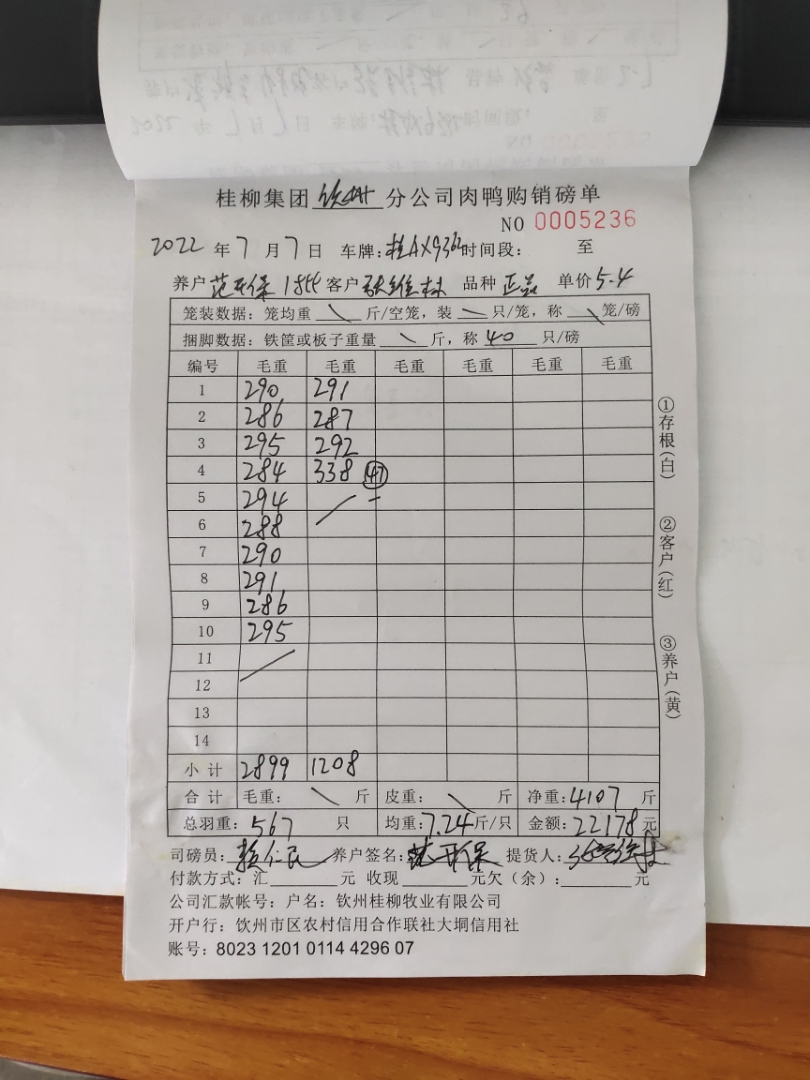 桂柳集团 钦州 分公司肉鸭购销磅单
NO 0005236
2022 年 7 月 7 日 车牌:桂AX9362 时间段: 至
养户 范开保 客户 品种 正品 单价 5.4
笼装数据:笼均重 \ 斤/空笼,装 \ 只/笼,称 \ 笼/磅
捆脚数据:铁筐或板子重量 \ 斤,称 40 只/磅
编号 毛重 毛重 毛重 毛重 毛重 毛重
1 290 291
2 286 287
3 295 292
4 284 338 47
5 294
6 288
7 290
8 291
9 286
10 295
11
12
13
14
小计 2899 1208
合计 毛重: \ 斤 皮重: \ 斤 净重:4107 斤
总羽重:567 只 均重:7.24 斤/只 金额:22178 元
司磅员: 养户签名:范开保 提货人:
付款方式:汇 元 收现 元欠(余): 元
公司汇款帐号:户名:钦州桂柳牧业有限公司
开户行:钦州市区农村信用合作联社大垌信用社
账号:8023 1201 0114 4296 07
①存根(白)
②客户(红)
③养户(黄)